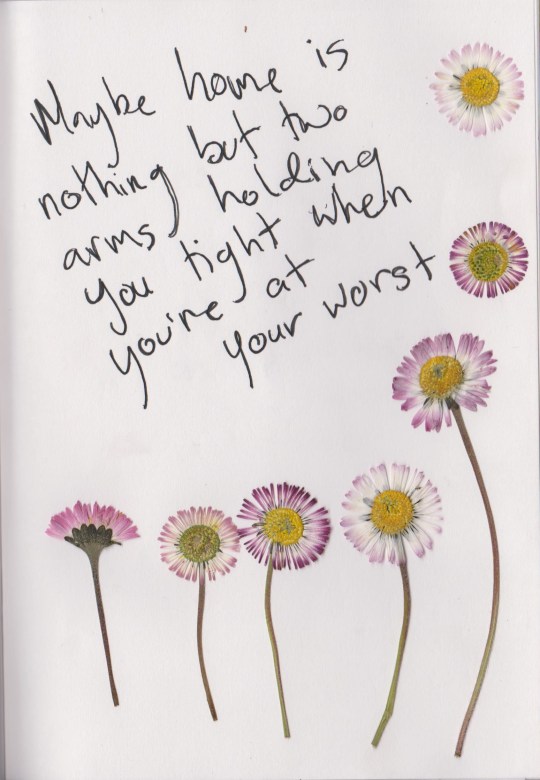 Maybe home is
nothing but two
arms holding
you tight when
you're at
your worst